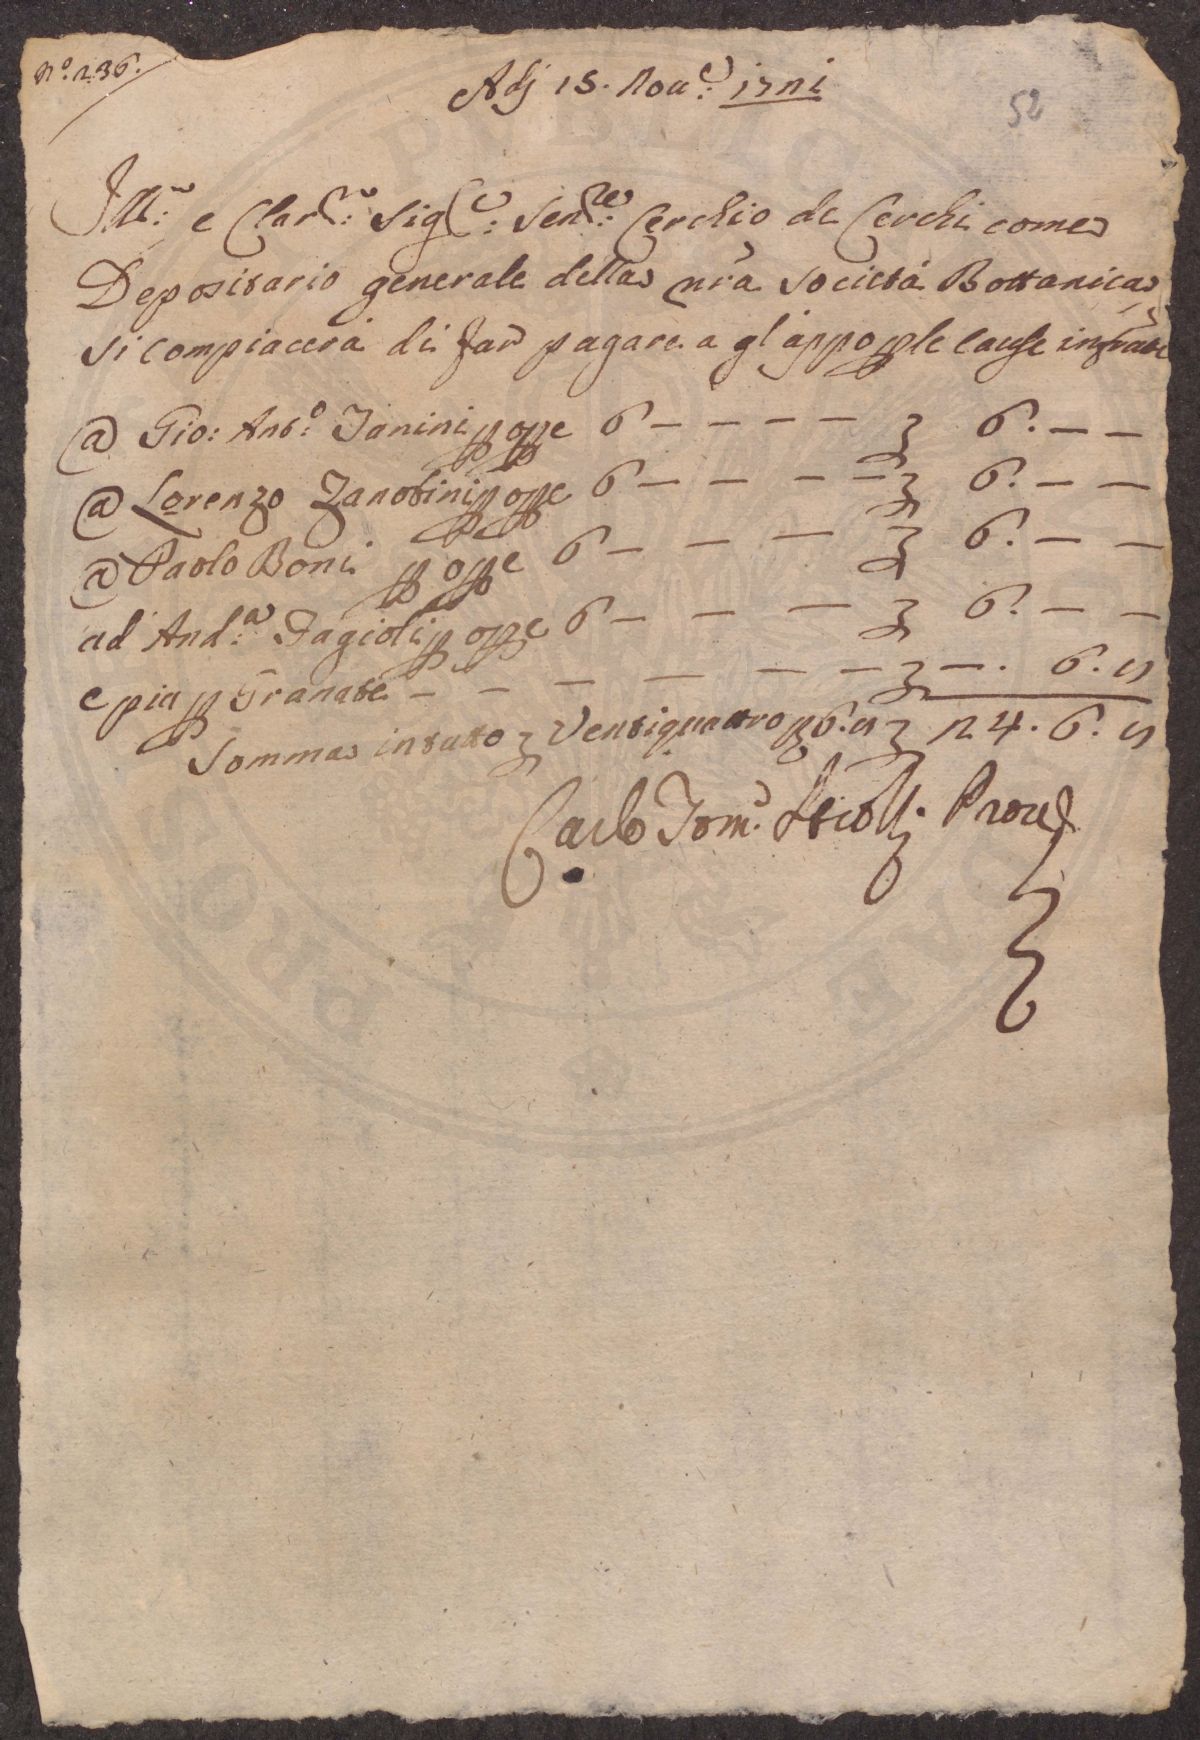 N.º 236.
Adj 15. Nou.e 1721
52
Ill.mo e Clar.mo Sig.e Sen.re Cerchio de Cerchi come
Depositario generale della nrã Società Bottanica
si compiacerà di far pagare a gl'appo p le cause infratte
@ Gio: Ant.o Fanini p opre 6 — — — — — 6. — —
@ Lorenzo Zanobini p opre 6 — — — — 6. — —
@ Paolo Boni p opre 6 — — — 6. — —
ad And.a Fagioli p opre 6 — — — 6. — —
e piu p Granate — — — — — — —. 6. 8
Somma in tutto Ventiquattro 6. 8 24. 6. 8
Carlo Tom.o
PVBLIC